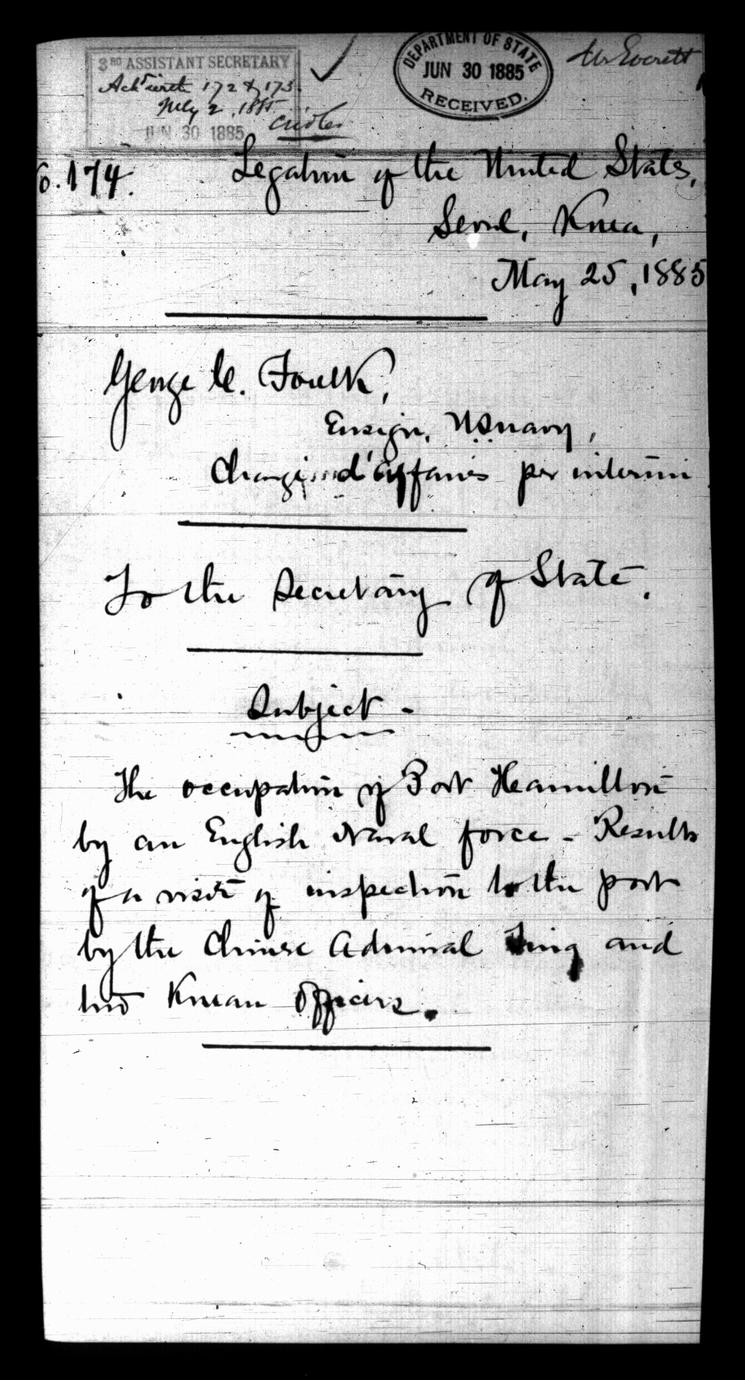 3RD ASSISTANT SECRETARY
Ack'd with 172 & 173.
July 2, 1885
JUN 30 1885
Cridler
DEPARTMENT OF STATE
JUN 30 1885
RECEIVED.
Mr Everett
o. 174.
Legation of the United States,
Seoul, Korea,
May 25, 1885
George C. Foulk,
Ensign, U.S. navy,
Chargé d'affaires per interim
To the Secretary of State.
Subject -
The occupation of Port Hamilton
by an English Naval force - Results
of a visit of inspection to the port
by the Chinese Admiral Ting and
two Korean Officers.